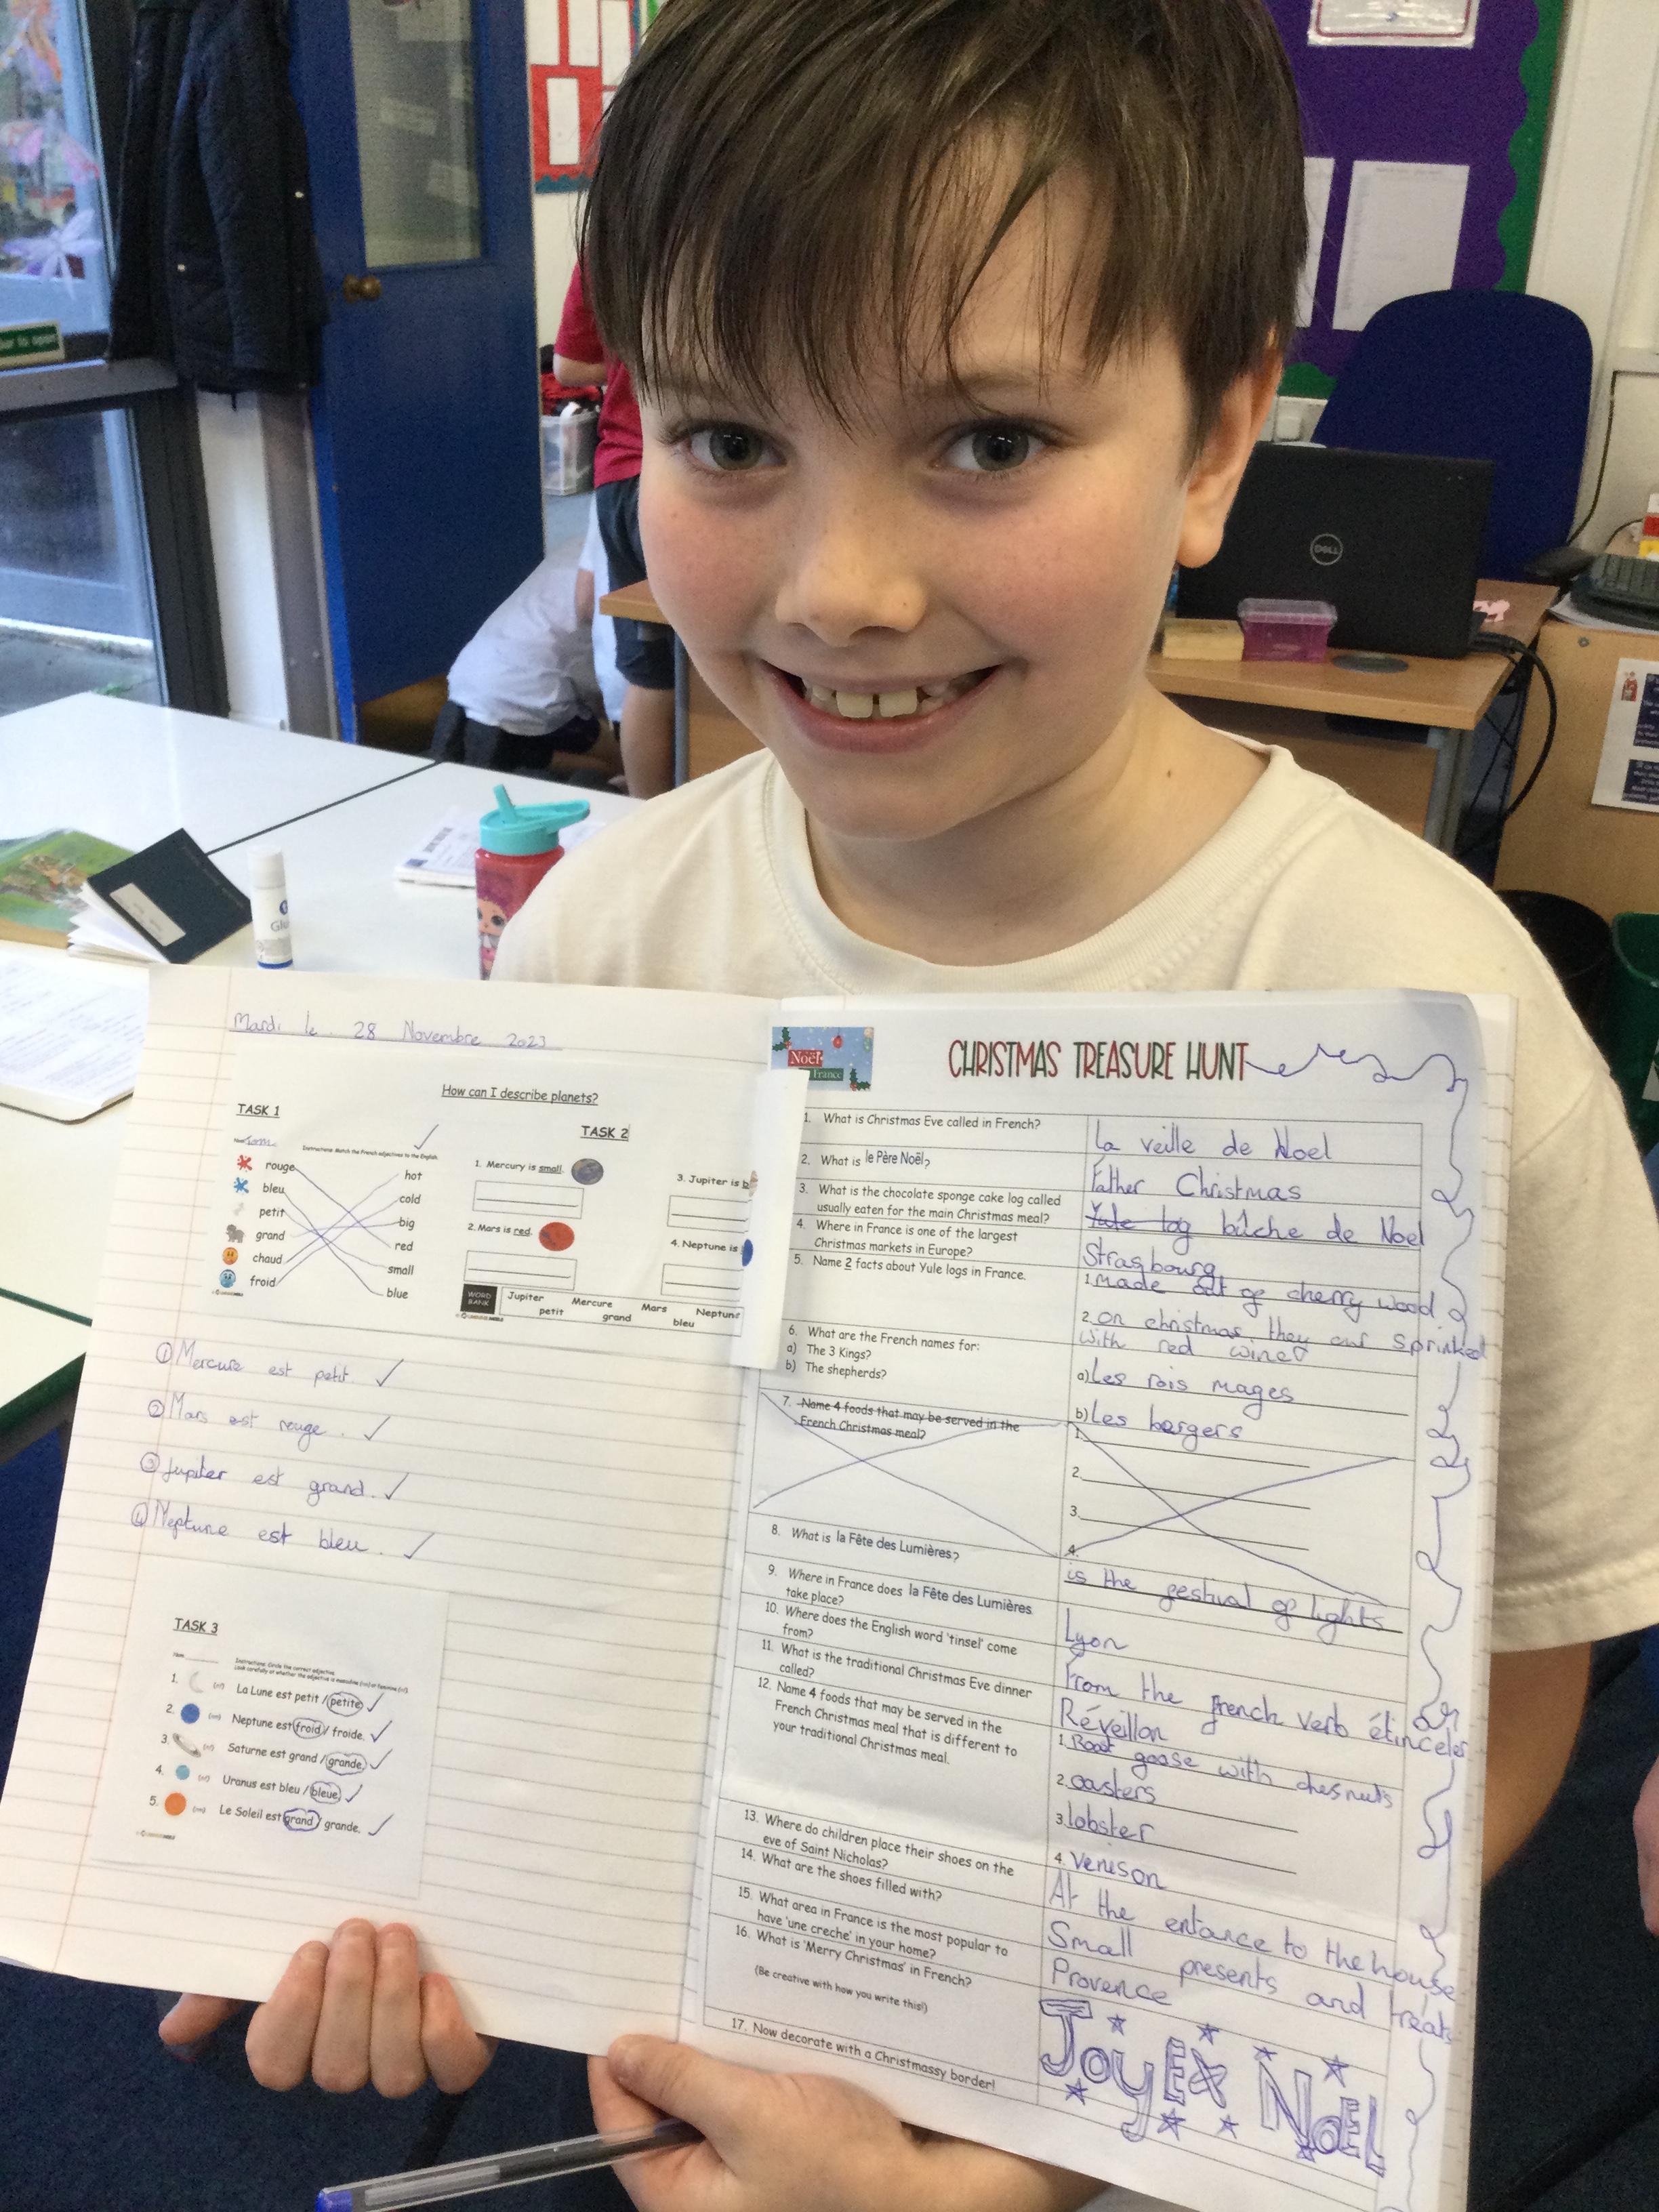 Mardi le 28 Novembre 2023
How can I describe planets?
TASK 1
Instructions: Match the French adjectives to the English.
rouge
bleu
petit
grand
chaud
froid
hot
cold
big
red
small
blue
TASK 2
1. Mercury is small.
2. Mars is red.
3. Jupiter is b
4. Neptune is
WORD BANK
Jupiter Mercure Mars Neptune
petit grand bleu
① Mercure est petit.
② Mars est rouge.
③ Jupiter est grand.
④ Neptune est bleu.
TASK 3
Instructions: Circle the correct adjective.
1. La Lune est petit / petite
2. Neptune est froid / froide.
3. Saturne est grand / grande.
4. Uranus est bleu / bleue
5. Le Soleil est grand / grande.
Noël
France
CHRISTMAS TREASURE HUNT
1. What is Christmas Eve called in French?
La veille de Noel
2. What is le Père Noël?
Father Christmas
3. What is the chocolate sponge cake log called
usually eaten for the main Christmas meal?
Yule log bûche de Noel
4. Where in France is one of the largest
Christmas markets in Europe?
Strasbourg
5. Name 2 facts about Yule logs in France.
1. made out of cherry wood
2. on christmas, they are sprinked
with red wine
6. What are the French names for:
a) The 3 Kings?
b) The shepherds?
a) Les rois mages
b) Les bergers
7. Name 4 foods that may be served in the
French Christmas meal?
1.
2.
3.
4.
8. What is la Fête des Lumières?
is the festival of lights
9. Where in France does la Fête des Lumières
take place?
Lyon
10. Where does the English word 'tinsel' come
from?
From the french verb étinceler
11. What is the traditional Christmas Eve dinner
called?
Réveillon
12. Name 4 foods that may be served in the
French Christmas meal that is different to
your traditional Christmas meal.
1. Roat goose with chesnuts
2. oasters
3. lobster
4. venison
13. Where do children place their shoes on the
eve of Saint Nicholas?
At the entance to the house
14. What are the shoes filled with?
Small presents and treats
15. What area in France is the most popular to
have 'une creche' in your home?
Provence
16. What is 'Merry Christmas' in French?
(Be creative with how you write this!)
JOYEX NOEL
17. Now decorate with a Christmassy border!
DELL
Glu